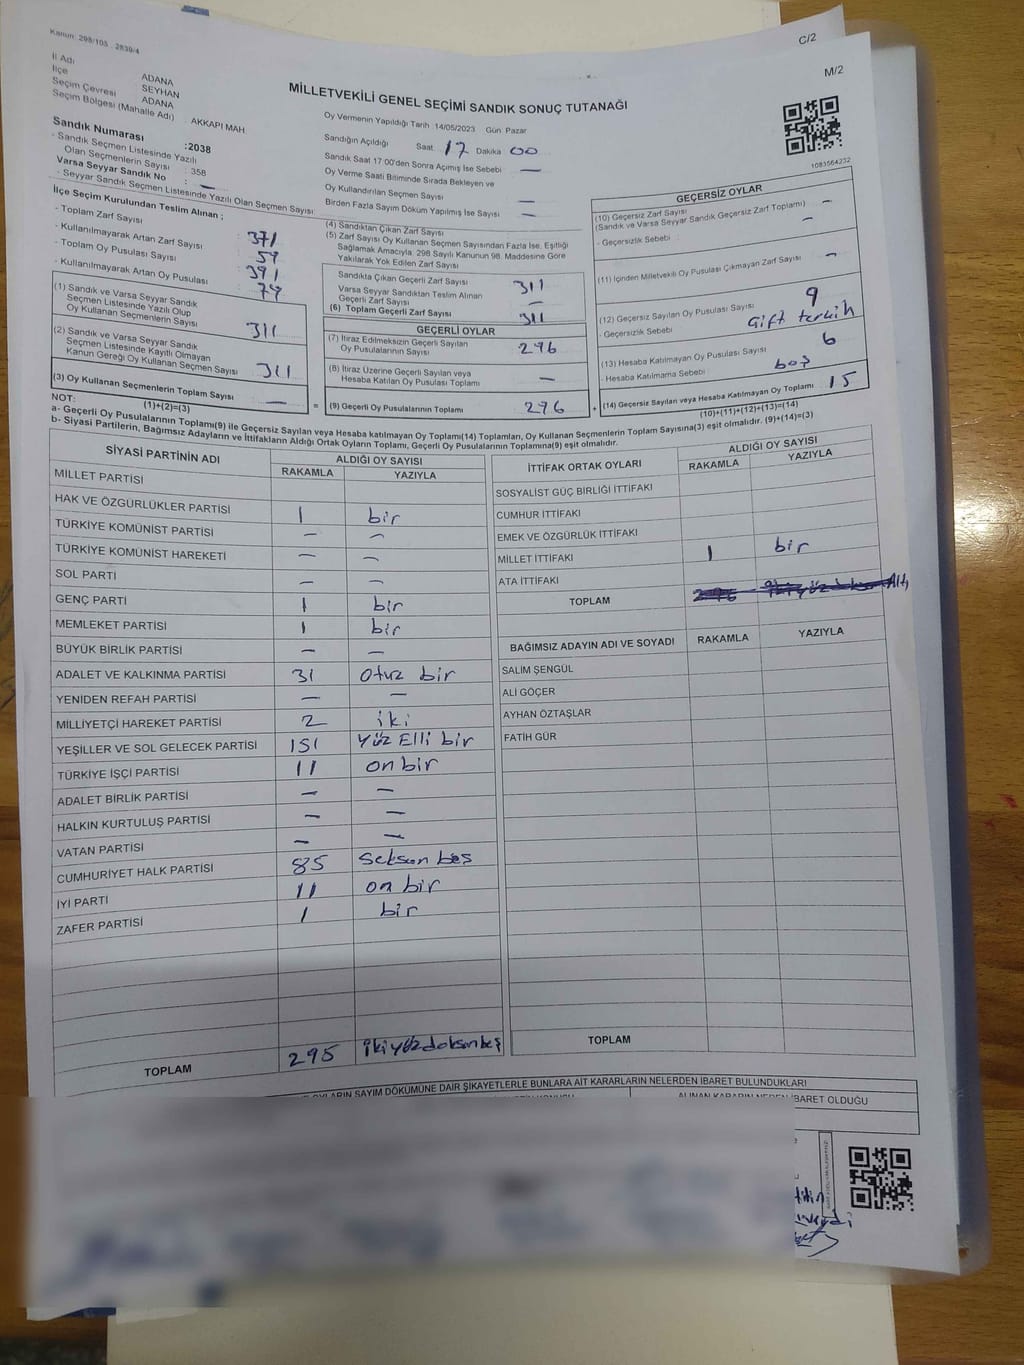 Kanun: 298/105 2839/4
C/2
M/2
İl Adı ADANA
İlçe SEYHAN
Seçim Çevresi ADANA
Seçim Bölgesi (Mahalle Adı) : AKKAPI MAH
Sandık Numarası :2038
- Sandık Seçmen Listesinde Yazılı
Olan Seçmenlerin Sayısı : 358
Varsa Seyyar Sandık No : —
- Seyyar Sandık Seçmen Listesinde Yazılı Olan Seçmen Sayısı:
MİLLETVEKİLİ GENEL SEÇİMİ SANDIK SONUÇ TUTANAĞI
Oy Vermenin Yapıldığı Tarih 14/05/2023 Gün Pazar
Sandığın Açıldığı Saat 17 Dakika 00
Sandık Saat 17 00'den Sonra Açımış İse Sebebi —
Oy Verme Saati Bitiminde Sırada Bekleyen ve
Oy Kullandırılan Seçmen Sayısı —
Birden Fazla Sayım Döküm Yapılmış İse Sayısı —
1083564232
İlçe Seçim Kurulundan Teslim Alınan ;
- Toplam Zarf Sayısı : 371
- Kullanılmayarak Artan Zarf Sayısı : 59
- Toplam Oy Pusulası Sayısı : 391
- Kullanılmayarak Artan Oy Pusulası : 74
(1) Sandık ve Varsa Seyyar Sandık
Seçmen Listesinde Yazılı Olup
Oy Kullanan Seçmenlerin Sayısı 311
(2) Sandık ve Varsa Seyyar Sandık
Seçmen Listesinde Kayıtlı Olmayan
Kanun Gereği Oy Kullanan Seçmen Sayısı 311
(3) Oy Kullanan Seçmenlerin Toplam Sayısı —
(1)+(2)=(3)
(4) Sandıktan Çıkan Zarf Sayısı
(5) Zarf Sayısı Oy Kullanan Seçmen Sayısından Fazla İse, Eşitliği
Sağlamak Amacıyla: 298 Sayılı Kanunun 98. Maddesine Göre
Yakılarak Yok Edilen Zarf Sayısı
Sandıkta Çıkan Geçerli Zarf Sayısı 311
Varsa Seyyar Sandıktan Teslim Alınan
Geçerli Zarf Sayısı —
(6) Toplam Geçerli Zarf Sayısı 311
GEÇERLİ OYLAR
(7) İtiraz Edilmeksizin Geçerli Sayılan
Oy Pusulalarının Sayısı 296
(8) İtiraz Üzerine Geçerli Sayılan veya
Hesaba Katılan Oy Pusulası Toplamı —
= (9) Geçerli Oy Pusulalarının Toplamı 296 +
GEÇERSİZ OYLAR
(10) Geçersiz Zarf Sayısı —
(Sandık ve Varsa Seyyar Sandık Geçersiz Zarf Toplamı) —
- Geçersizlik Sebebi :
(11) İçinden Milletvekili Oy Pusulası Çıkmayan Zarf Sayısı —
(12) Geçersiz Sayılan Oy Pusulası Sayısı 9
- Geçersizlik Sebebi Çift tercih
(13) Hesaba Katılmayan Oy Pusulası Sayısı 6
- Hesaba Katılmama Sebebi : boş
(14) Geçersiz Sayılan veya Hesaba Katılmayan Oy Toplamı 15
(10)+(11)+(12)+(13)=(14)
NOT:
a- Geçerli Oy Pusulalarının Toplamı(9) ile Geçersiz Sayılan veya Hesaba katılmayan Oy Toplamı(14) Toplamları, Oy Kullanan Seçmenlerin Toplam Sayısına(3) eşit olmalıdır. (9)+(14)=(3)
b- Siyasi Partilerin, Bağımsız Adayların ve İttifakların Aldığı Ortak Oyların Toplamı, Geçerli Oy Pusulalarının Toplamına(9) eşit olmalıdır.
SİYASİ PARTİNİN ADI ALDIĞI OY SAYISI
RAKAMLA YAZIYLA
MİLLET PARTİSİ
HAK VE ÖZGÜRLÜKLER PARTİSİ 1 bir
TÜRKİYE KOMÜNİST PARTİSİ — —
TÜRKİYE KOMÜNİST HAREKETİ — —
SOL PARTİ — —
GENÇ PARTİ 1 bir
MEMLEKET PARTİSİ 1 bir
BÜYÜK BİRLİK PARTİSİ — —
ADALET VE KALKINMA PARTİSİ 31 otuz bir
YENİDEN REFAH PARTİSİ — —
MİLLİYETÇİ HAREKET PARTİSİ 2 iki
YEŞİLLER VE SOL GELECEK PARTİSİ 151 Yüz Elli bir
TÜRKİYE İŞÇİ PARTİSİ 11 on bir
ADALET BİRLİK PARTİSİ — —
HALKIN KURTULUŞ PARTİSİ — —
VATAN PARTİSİ — —
CUMHURİYET HALK PARTİSİ 85 Seksen beş
İYİ PARTİ 11 on bir
ZAFER PARTİSİ 1 bir
TOPLAM 295 ikiyüzdoksanbeş
İTTİFAK ORTAK OYLARI ALDIĞI OY SAYISI
RAKAMLA YAZIYLA
SOSYALİST GÜÇ BİRLİĞİ İTTİFAKI
CUMHUR İTTİFAKI
EMEK VE ÖZGÜRLÜK İTTİFAKI
MİLLET İTTİFAKI 1 bir
ATA İTTİFAKI
TOPLAM 296 Altı
BAĞIMSIZ ADAYIN ADI VE SOYADI RAKAMLA YAZIYLA
SALİM ŞENGÜL
ALİ GÖÇER
AYHAN ÖZTAŞLAR
FATİH GÜR
TOPLAM
OYLARIN SAYIM DÖKÜMÜNE DAİR ŞİKAYETLERLE BUNLARA AİT KARARLARIN NELERDEN İBARET BULUNDUKLARI
ALINAN KARARIN NEDEN İBARET OLDUĞU